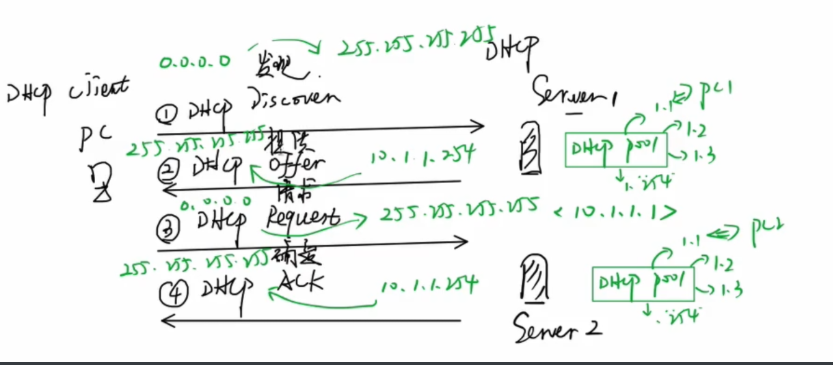 0.0.0.0
255.255.255.255
发现
DHCP
DHCP client
Server 1
① DHCP Discover
1.1
PC1
PC
255.255.255.255
提供
DHCP pool
1.2
1.3
② DHCP Offer
10.1.1.254
1.254
请求
0.0.0.0
③ DHCP Request
255.255.255.255 <10.1.1.1>
1.1
PC2
确认
255.255.255.255
④ DHCP ACK
10.1.1.254
DHCP pool
1.2
1.3
.254
Server 2